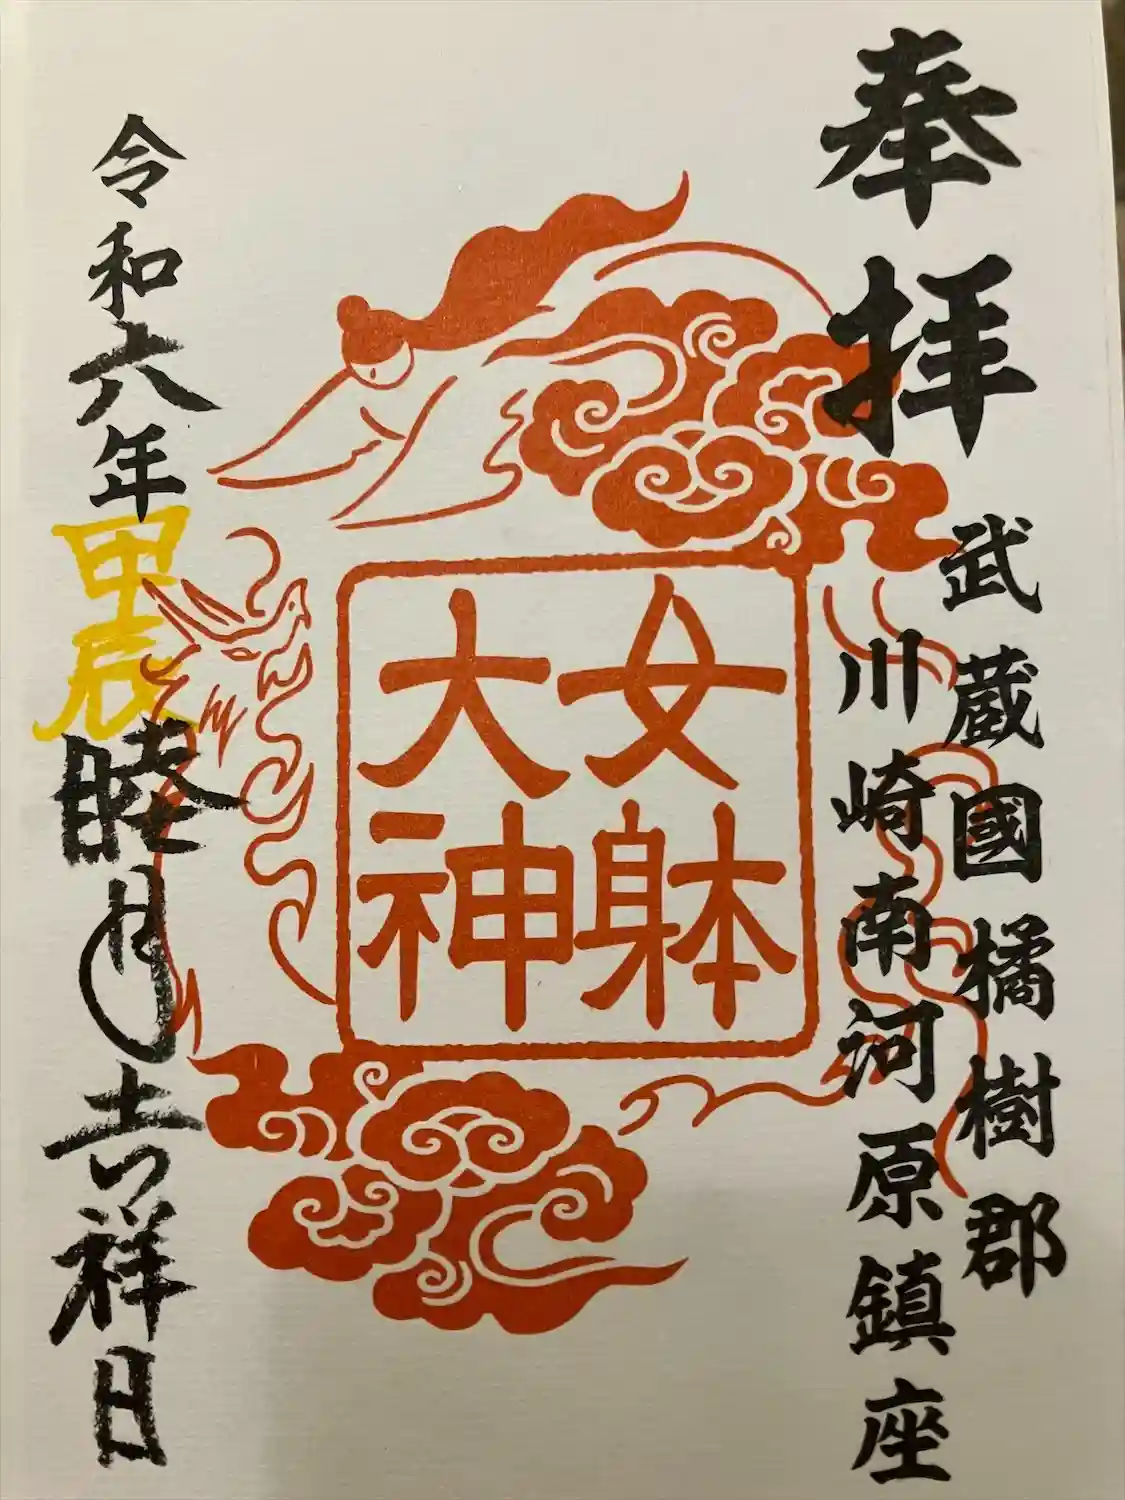 奉拝
武蔵國橘樹郡
川崎南河原鎮座
女躰
大神
令和六年甲辰睦月吉祥日